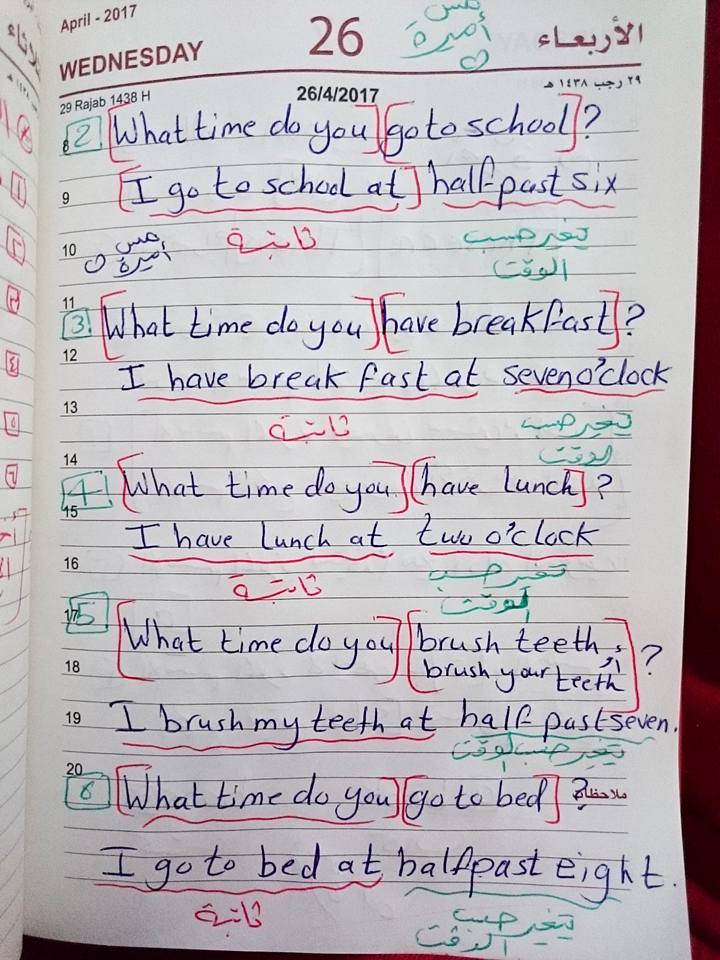 April - 2017
مس
أميرة
WEDNESDAY 26 الأربعاء
29 Rajab 1438 H 26/4/2017 ٢٩ رجب ١٤٣٨ هـ
8 2 [What time do you] [go to school] ?
9 [I go to school at] half past six
10 مس أميرة ثابتة يتغير حسب
الوقت
11
3 [What time do you] [have breakfast] ?
12
I have break fast at seven o'clock
13 ثابتة يتغير حسب
14 الوقت
4 [What time do you] [have lunch] ?
15
I have lunch at two o'clock
16 ثابتة يتغير حسب
الوقت
17 5 [What time do you] [brush teeth
18 أو brush your teeth] ?
19 I brush my teeth at half past seven.
يتغير حسب الوقت
20
6 [What time do you] [go to bed] ?
I go to bed at half past eight.
ثابتة يتغير حسب
الوقت